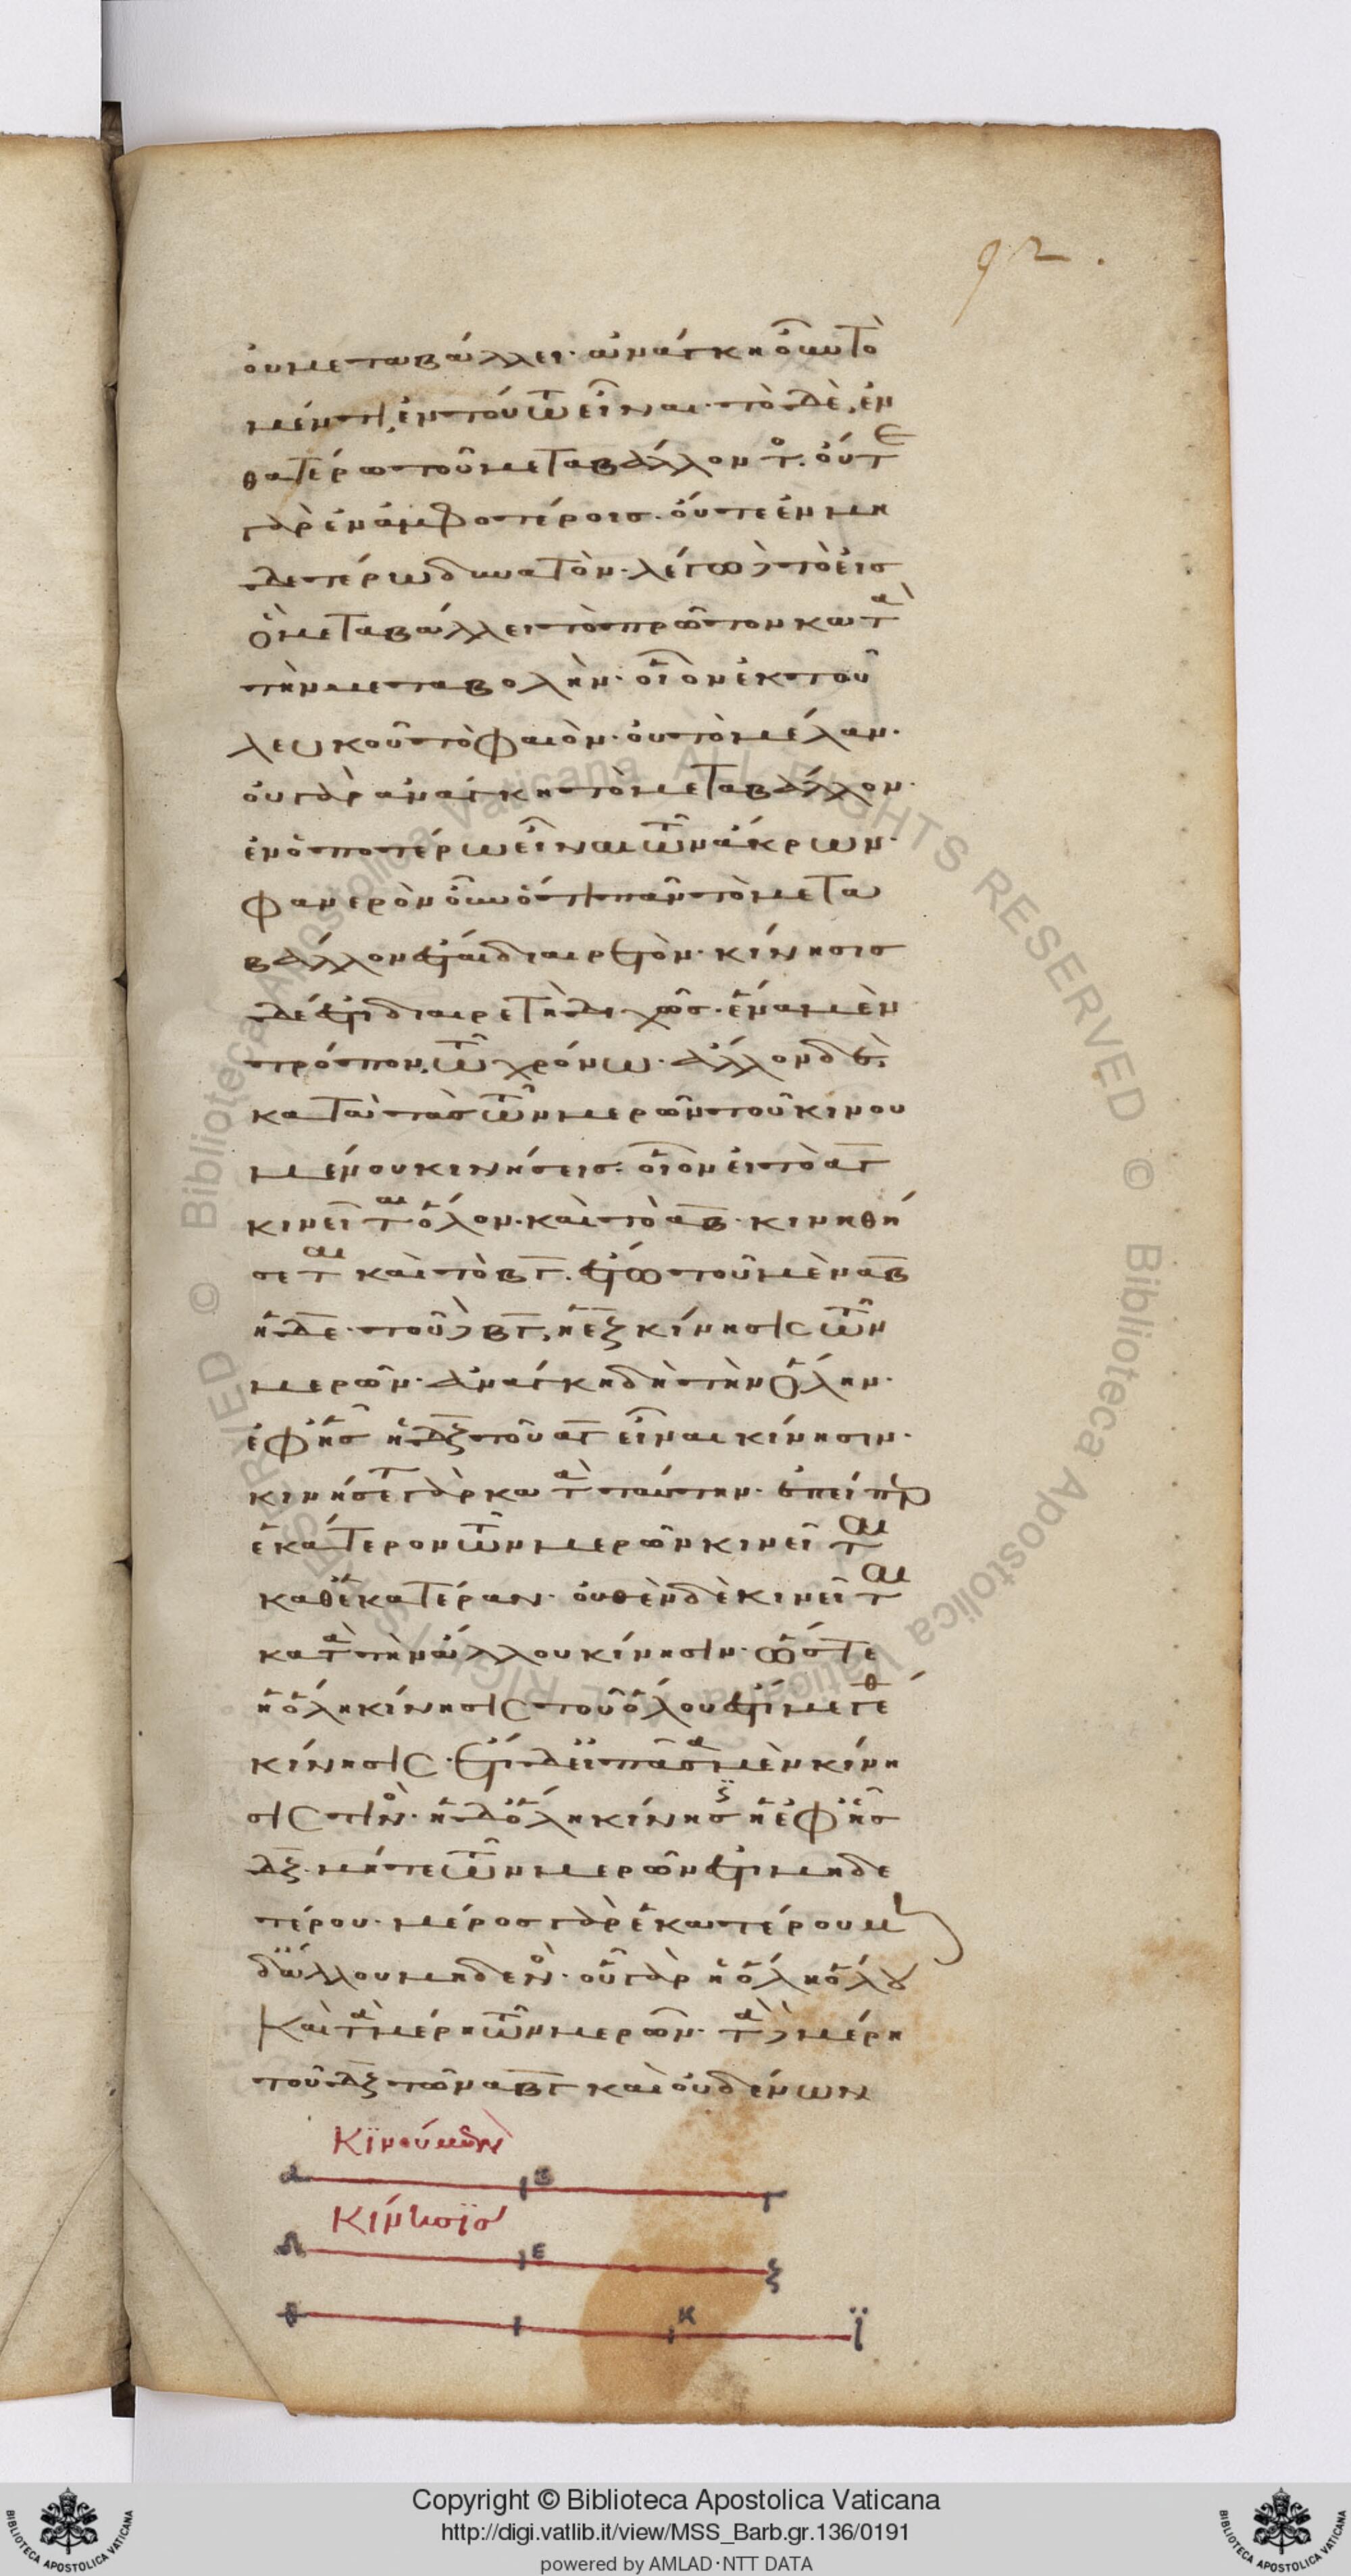 92.
οὐ μεταβάλλει· ἀνάγκη οὖν τὸ
μέν τι, ἐν τούτω εἶναι· τὸ δὲ, ἐν
θατέρω τοῦ μεταβάλλοντ̊. οὔτε
γὰρ ἐν ἀμφοτέροις. οὔτε ἐν μη
δετέρω δυνατόν· λέγω δὲ τὸ εἰς
ὃ μεταβάλλει τὸ πρῶτον κατὰ
τὴν μεταβολήν· οἷον ἐκ τοῦ
λευκοῦ τὸ φαιὸν· οὐ τὸ μέλαν·
οὐ γὰρ ἀνάγκη τὸ μεταβάλλον·
ἐν ὁποτέρω εἶναι τῶν ἄκρων·
φανερὸν οὖν ὅτι πᾶν τὸ μετα
βάλλον ἔσται διαιρετόν· κίνησις
δέ ἐστι διαιρετὴ διχῶς· ἕνα μὲν
τρόπον, τῶ χρόνω· ἄλλον δὲ,
κατὰ τὰς τῶν μερῶν τοῦ κινου
μένου κινήσεις· οἷον εἰ τὸ αγ
κινεῖται ὅλον· καὶ τὸ αβ· κινηθή
σεται καὶ τὸ βγ. ἔστω τοῦ μὲν αβ
ἡ δε· τοῦ δὲ βγ, ἡ εζ κίνησις τῶν
μερῶν· ἀνάγκη δὴ τὴν ὅλην·
ἐφ' ἧς ἡ δζ τοῦ αγ εἶναι κίνησιν·
κινήσεται γὰρ κατὰ ταύτην· ἐπείπερ
ἑκάτερον τῶν μερῶν κινεῖται
καθ' ἑκατέραν· οὐθὲν δὲ κινεῖται
κατὰ τὴν ἄλλου κίνησιν· ὥστε
ἡ ὅλη κίνησις τοῦ ὅλου ἐστὶ μεγέθ
κίνησις· ἔτι δ' εἰ πᾶσα μὲν κίνη
σις τινὸς· ἡ δ' ὅλη κίνησις ἡ ἐφ' ἧς
δζ. μήτε τῶν μερῶν ἐστι μηδε
τέρου· μέρος γὰρ ἑκατέρου μ
δ' ἄλλου μηδενὸς· οὗ γὰρ ἡ ὅλη ὅλου
Καὶ τὰ μέρη τῶν μερῶν· τὰ δὲ μέρη
τοῦ δζ τῶν αβγ καὶ οὐδένων
Κϊνούμενον
α β γ
Κίνησϊσ
Δ ε ζ
θ κ ϊ
Copyright © Biblioteca Apostolica Vaticana
http://digi.vatlib.it/view/MSS_Barb.gr.136/0191
powered by AMLAD·NTT DATA